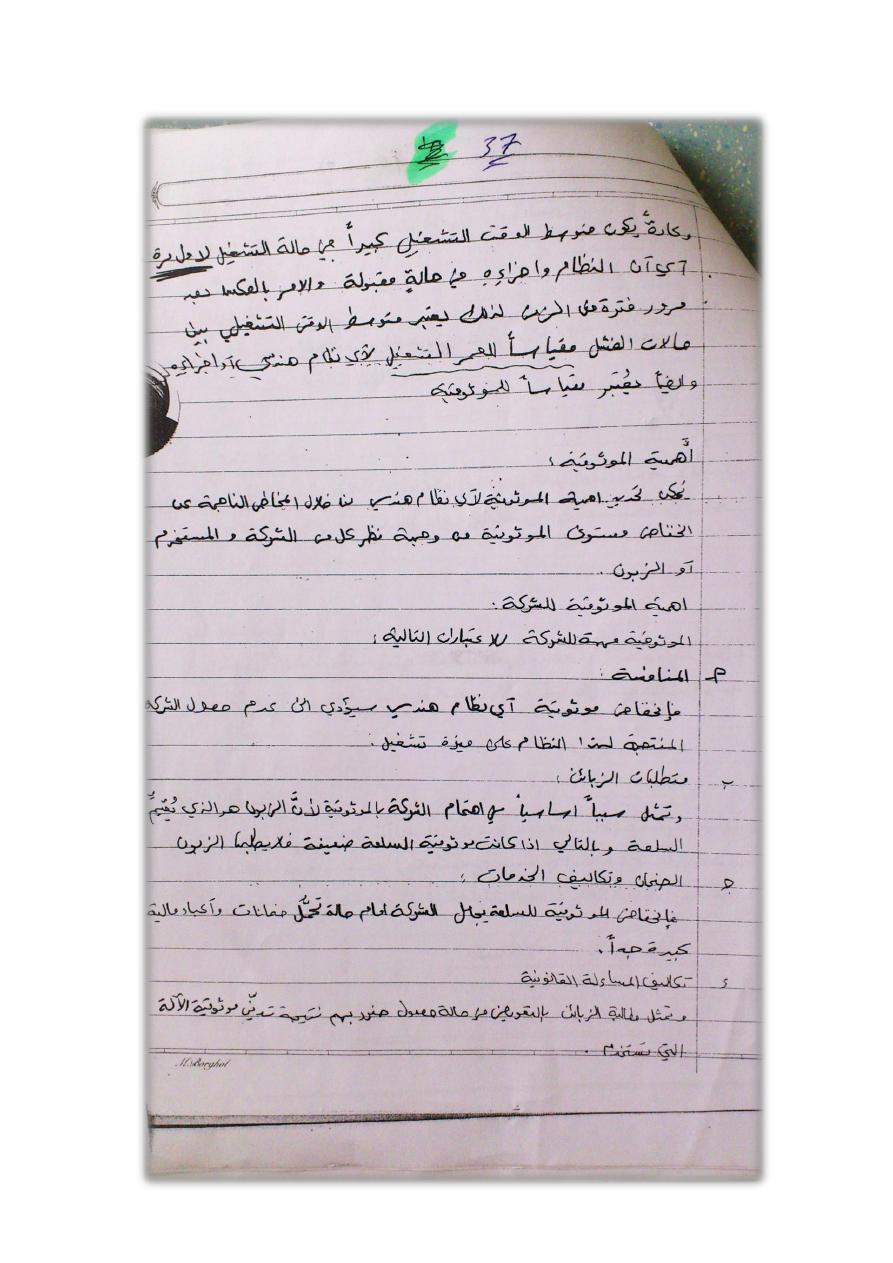 37
وعادةً يكون متوسط الوقت التشغيلي كبيراً في حالة التشغيل لأول مرة
أي أن النظام واجزاءه في حالةٍ مقبولة والامر بالعكس بعد
مرور فترة من الزمن لذلك يعتبر متوسط الوقت التشغيلي بين
حالات الفشل مقياساً للعمر التشغيلي لأي نظام هندسي أو اجزاءه
وايضاً يُعتبر مقياساً للموثوقية
أهمية الموثوقية :
يمكن تحديد اهمية الموثوقية لأي نظام هندسي من خلال المخاطر الناجمة عن
انخفاض مستوى الموثوقية من وجهة نظر كل من الشركة و المستخدم
أو الزبون .
اهمية الموثوقية للشركة :
الموثوقية مهمة للشركة للاعتبارات التالية :
أ- المنافسة :
فإنخفاض موثوقية أي نظام هندسي سيؤدي الى عدم حصول الشركة
المنتجة لهذا النظام على ميزة تشغيل .
ب متطلبات الزبائن :
وتمثل سبباً اساسياً في اهتمام الشركة بالموثوقية لأنَّ الزبون هو الذي يُقيِّمُ
السلعة وبالتالي اذا كانت موثوقية السلعة ضعيفة فلا يطلبها الزبون
ج الضمان وتكاليف الخدمات :
فإنخفاض الموثوقية للسلعة يجعل الشركة امام حالة تحمُّل ضمانات وأعباء مالية
كبيرة جداً .
د تكاليف المساءلة القانونية
وتمثل مطالبة الزبائن بالتعويض في حالة حصول ضرر بهم نتيجة تدنّي موثوقية الآلة
التي تستخدم .
M.Borghol